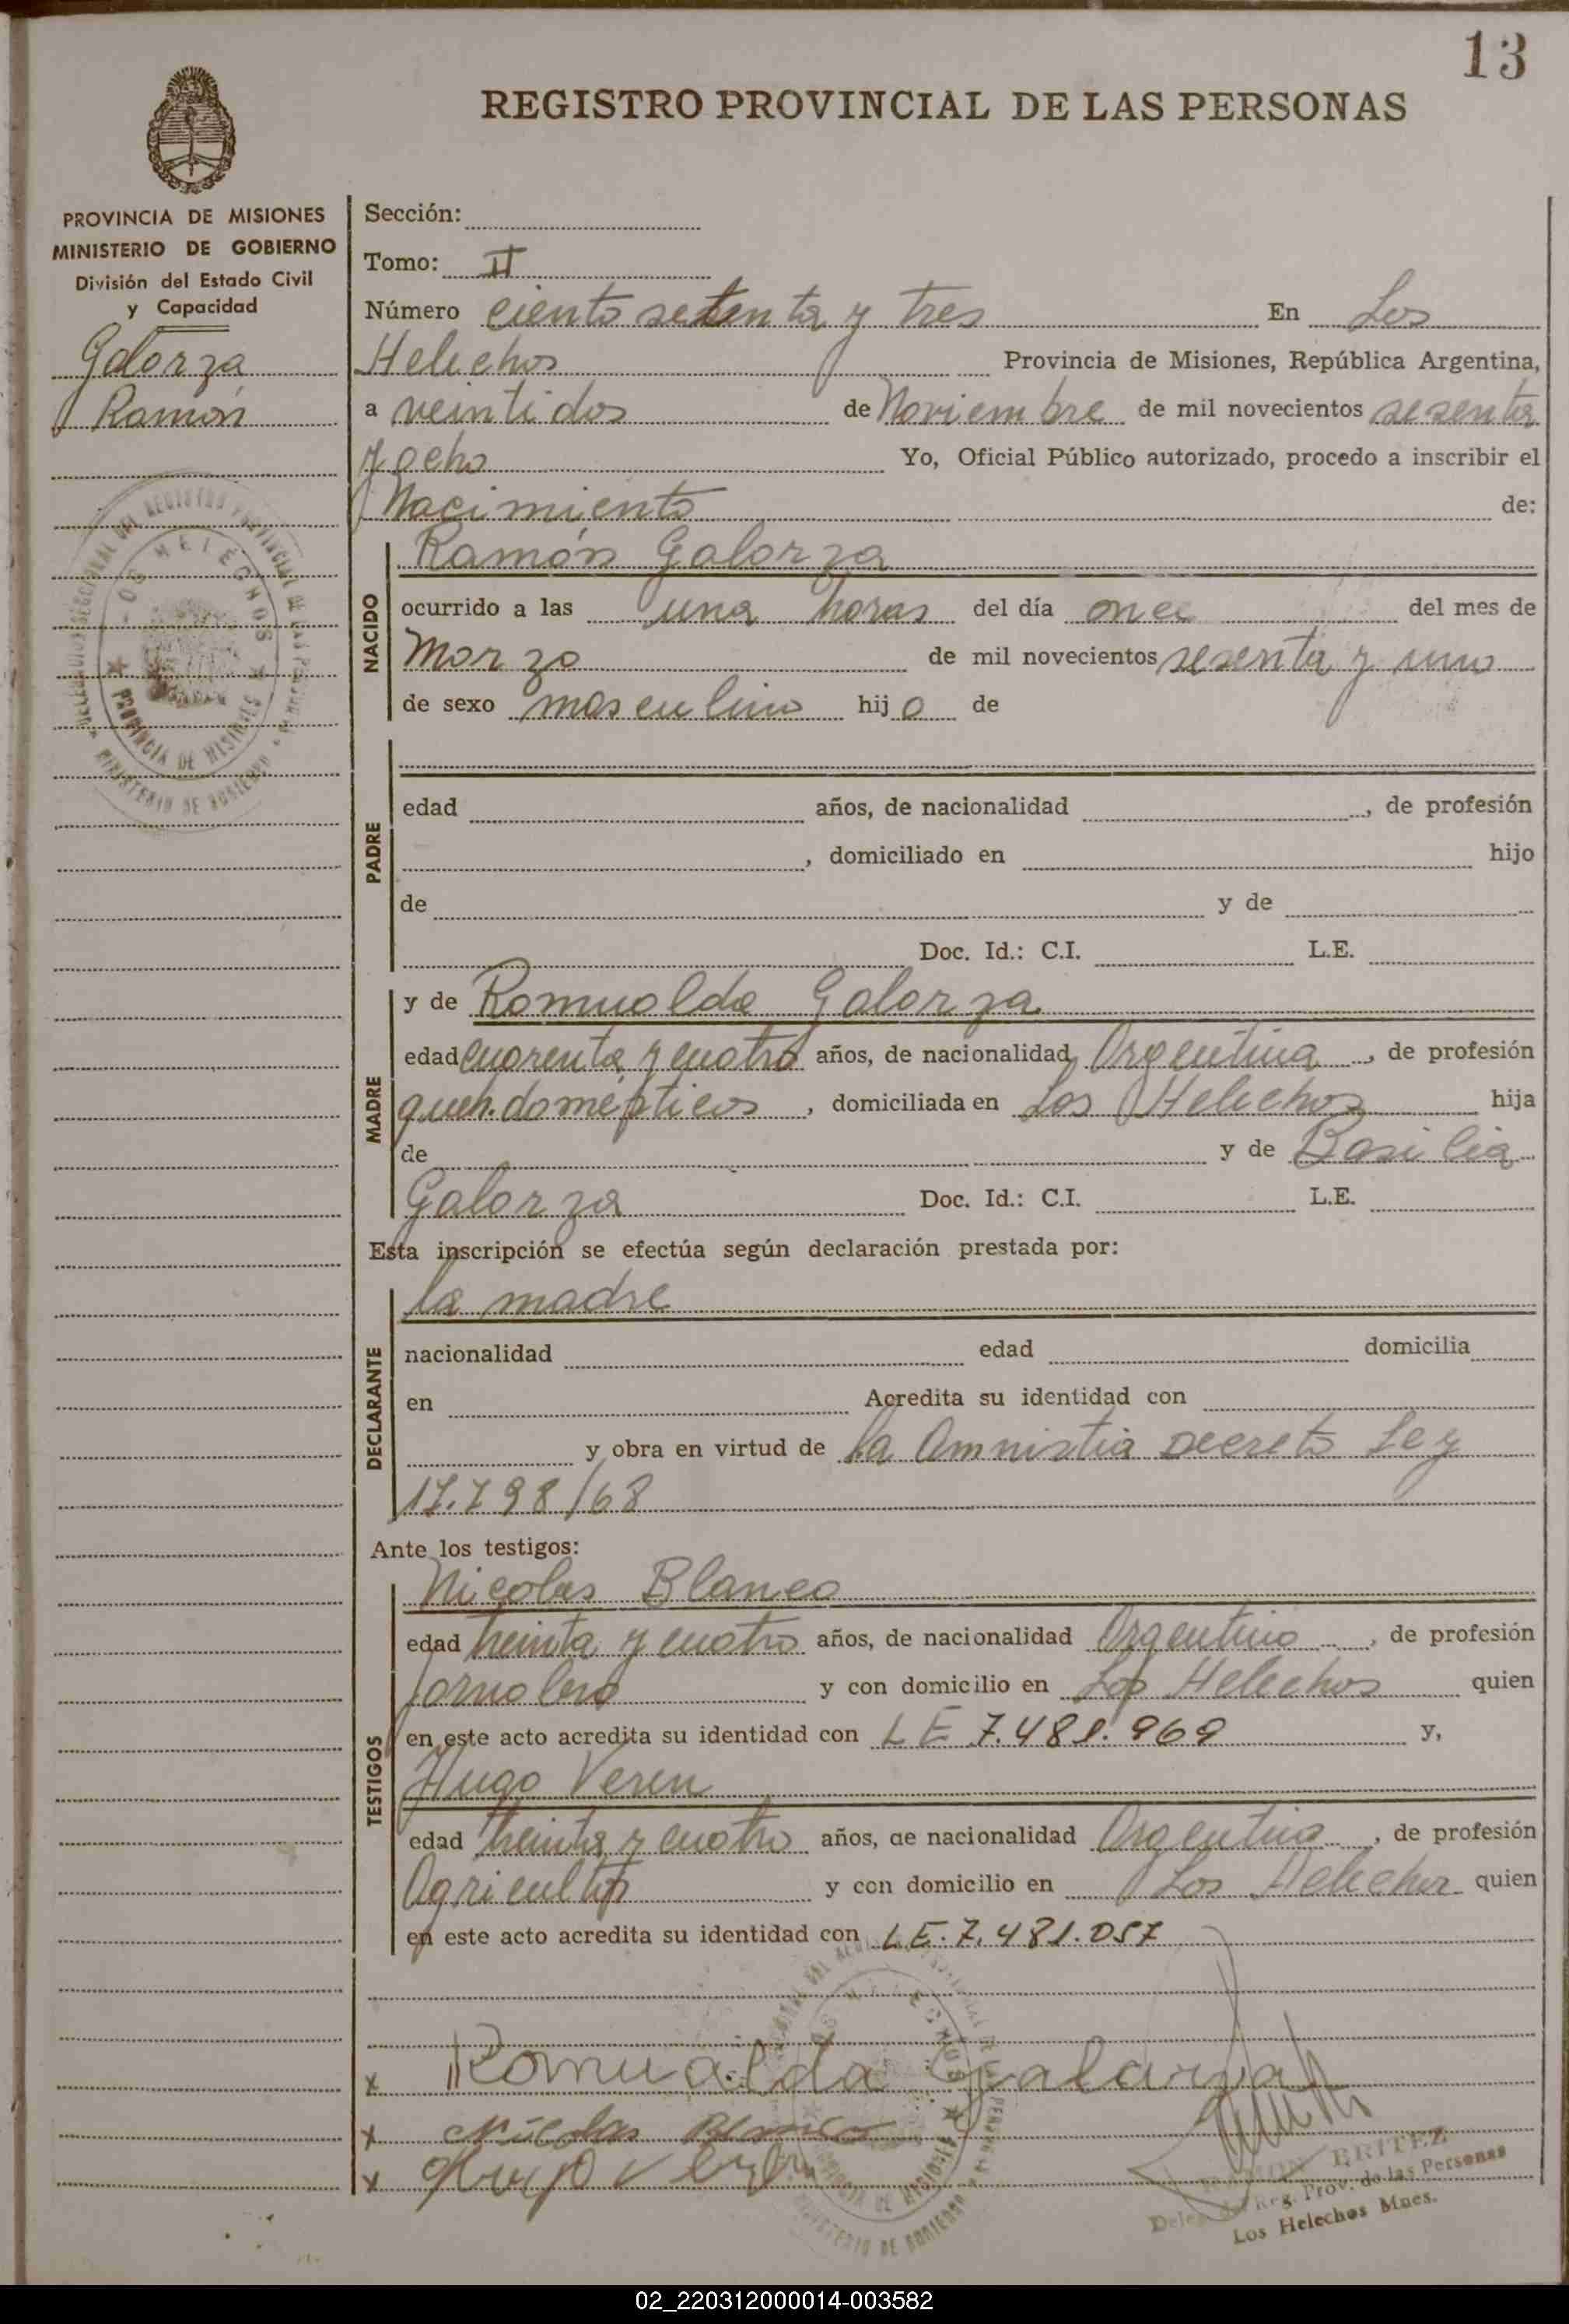 13
REGISTRO PROVINCIAL DE LAS PERSONAS
PROVINCIA DE MISIONES
MINISTERIO DE GOBIERNO
División del Estado Civil
y Capacidad
Galarza
Ramón
Sección:
Tomo: II
Número ciento setenta y tres En Los
Helechos Provincia de Misiones, República Argentina,
a veintidos de Noviembre de mil novecientos sesenta
y ocho Yo, Oficial Público autorizado, procedo a inscribir el
Nacimiento de:
NACIDO
Ramón Galarza
ocurrido a las una horas del día once del mes de
Marzo de mil novecientos sesenta y uno
de sexo masculino hijo de
PADRE
edad años, de nacionalidad , de profesión
, domiciliado en hijo
de y de
Doc. Id.: C.I. L.E.
MADRE
y de Romualda Galarza
edad cuarenta y cuatro años, de nacionalidad Argentina , de profesión
queh. domésticos , domiciliada en Los Helechos hija
de y de Basilia
Galarza Doc. Id.: C.I. L.E.
Esta inscripción se efectúa según declaración prestada por:
DECLARANTE
la madre
nacionalidad edad domicilia
en Acredita su identidad con
y obra en virtud de la Amnistia Decreto Ley
17.798/68
Ante los testigos:
TESTIGOS
Nicolas Blanco
edad treinta y cuatro años, de nacionalidad Argentino , de profesión
Jornalero y con domicilio en Los Helechos quien
en este acto acredita su identidad con LE 7.481.969 y,
Hugo Veren
edad treinta y cuatro años, de nacionalidad Argentino , de profesión
Agricultor y con domicilio en Los Helechos quien
en este acto acredita su identidad con LE. 7.481.057
x Romualda Galarza
x Nicolas Blanco
x Hugo Veren
BRITEZ
Reg. Prov. de las Personas
Los Helechos Mnes.
LOS HELECHOS
PROVINCIA DE MISIONES
MINISTERIO DE GOBIERNO
02_220312000014-003582